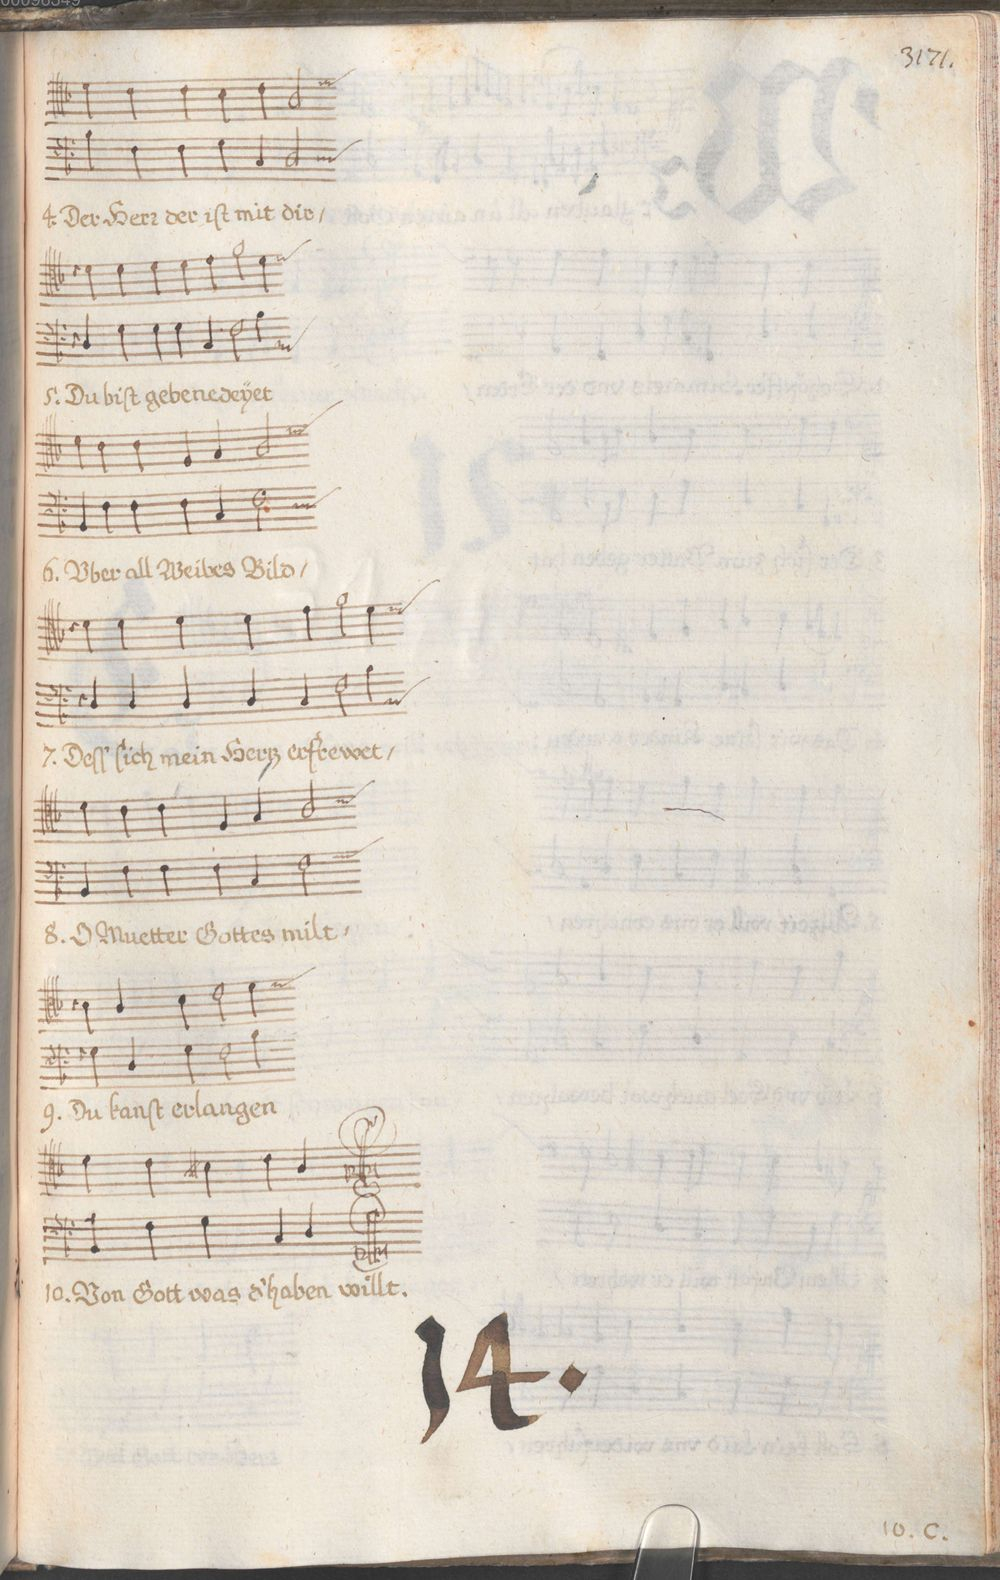 3171.
4. Der Herr der ist mit dir /
5. Du bist gebenedeÿet
6. Vber all Weibes Bild /
7. Dess' sich mein Hertz erfrewet /
8. O Muetter Gottes milt /
9. Du kanst erlangen
10. Von Gott was d'haben willt.
14.
10. C.